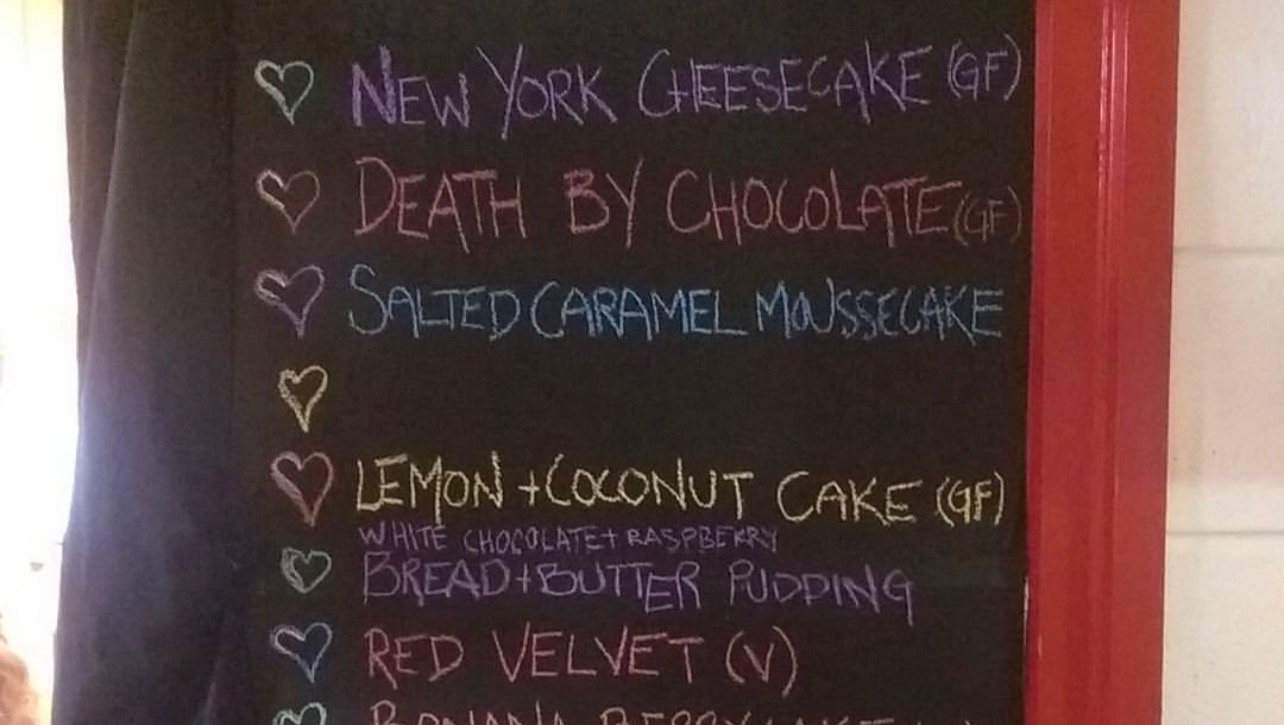 NEW YORK CHEESECAKE (GF)
DEATH BY CHOCOLATE (GF)
SALTED CARAMEL MOUSSECAKE
LEMON + COCONUT CAKE (GF)
WHITE CHOCOLATE + RASPBERRY
BREAD + BUTTER PUDDING
RED VELVET (V)
BANANA BERRY CAKE